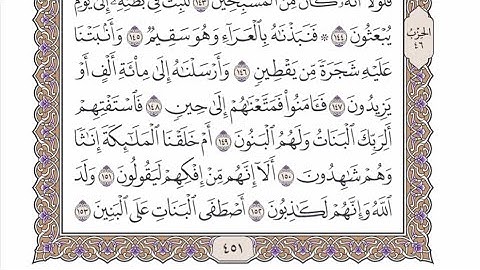 فَلَوْلَآ أَنَّهُۥ كَانَ مِنَ ٱلْمُسَبِّحِينَ ١٤٣ لَلَبِثَ فِى بَطْنِهِۦٓ إِلَىٰ يَوْمِ
يُبْعَثُونَ ١٤٤ ۞ فَنَبَذْنَٰهُ بِٱلْعَرَآءِ وَهُوَ سَقِيمٌ ١٤٥ وَأَنۢبَتْنَا
عَلَيْهِ شَجَرَةً مِّن يَقْطِينٍ ١٤٦ وَأَرْسَلْنَٰهُ إِلَىٰ مِا۟ئَةِ أَلْفٍ أَوْ
يَزِيدُونَ ١٤٧ فَـَٔامَنُوا۟ فَمَتَّعْنَٰهُمْ إِلَىٰ حِينٍ ١٤٨ فَٱسْتَفْتِهِمْ
أَلِرَبِّكَ ٱلْبَنَاتُ وَلَهُمُ ٱلْبَنُونَ ١٤٩ أَمْ خَلَقْنَا ٱلْمَلَٰٓئِكَةَ إِنَٰثًا
وَهُمْ شَٰهِدُونَ ١٥٠ أَلَآ إِنَّهُم مِّنْ إِفْكِهِمْ لَيَقُولُونَ ١٥١ وَلَدَ
ٱللَّهُ وَإِنَّهُمْ لَكَٰذِبُونَ ١٥٢ أَصْطَفَى ٱلْبَنَاتِ عَلَى ٱلْبَنِينَ ١٥٣
٤٥١
الحزب
٤٦